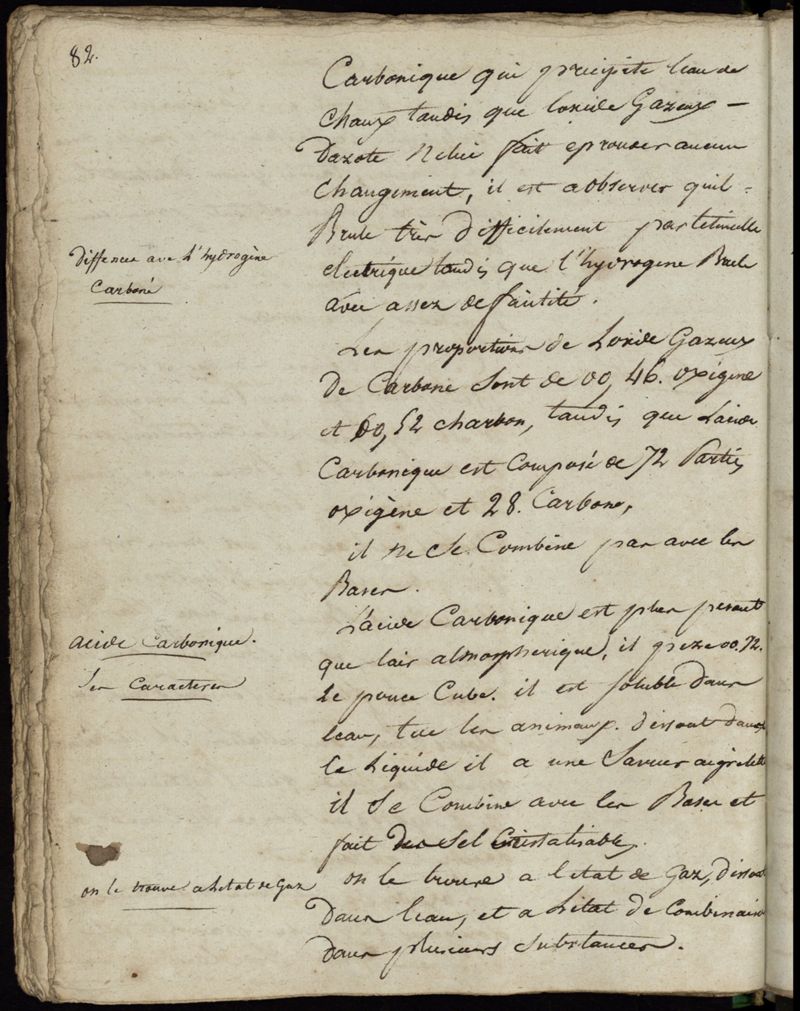 82.
Carbonique qui precipite leau de
Chaux tandis que loxide Gazeux —
Dazote N'elui fait eprouver aucun
Changement, il est a observer quil =
Brule très Difficilement par letincelle
Differences avec L'hydrogène
Carboné
electrique tandis que l'hydrogene Brule
avec assez de
Les proportions de Loxide Gazeux
De Carbone sont de 00,46. oxigene
et 00,52 charbon, tandis que Lacide
Carbonique est Composé de 72 Parties
oxigène et 28. Carbone,
il Ne Se Combine pas avec les
Bases.
acide Carbonique.
Ses Caracteres
L'acide Carbonique est plus pesant
que lair atmospherique, il peze 00.72.
le pouce Cube. il est soluble Dans
leau, tue les animaux. dissout Dans
Ce Liquide il a une Saveur aigrelette
il Se Combine avec les Bases et
fait Des Sel Cristalisables.
on le trouve a Letat de Gaz
on le trouve a letat de Gaz, dissout
Dans leau, et a Letat de Combinaison
Dans plusieurs Substances.